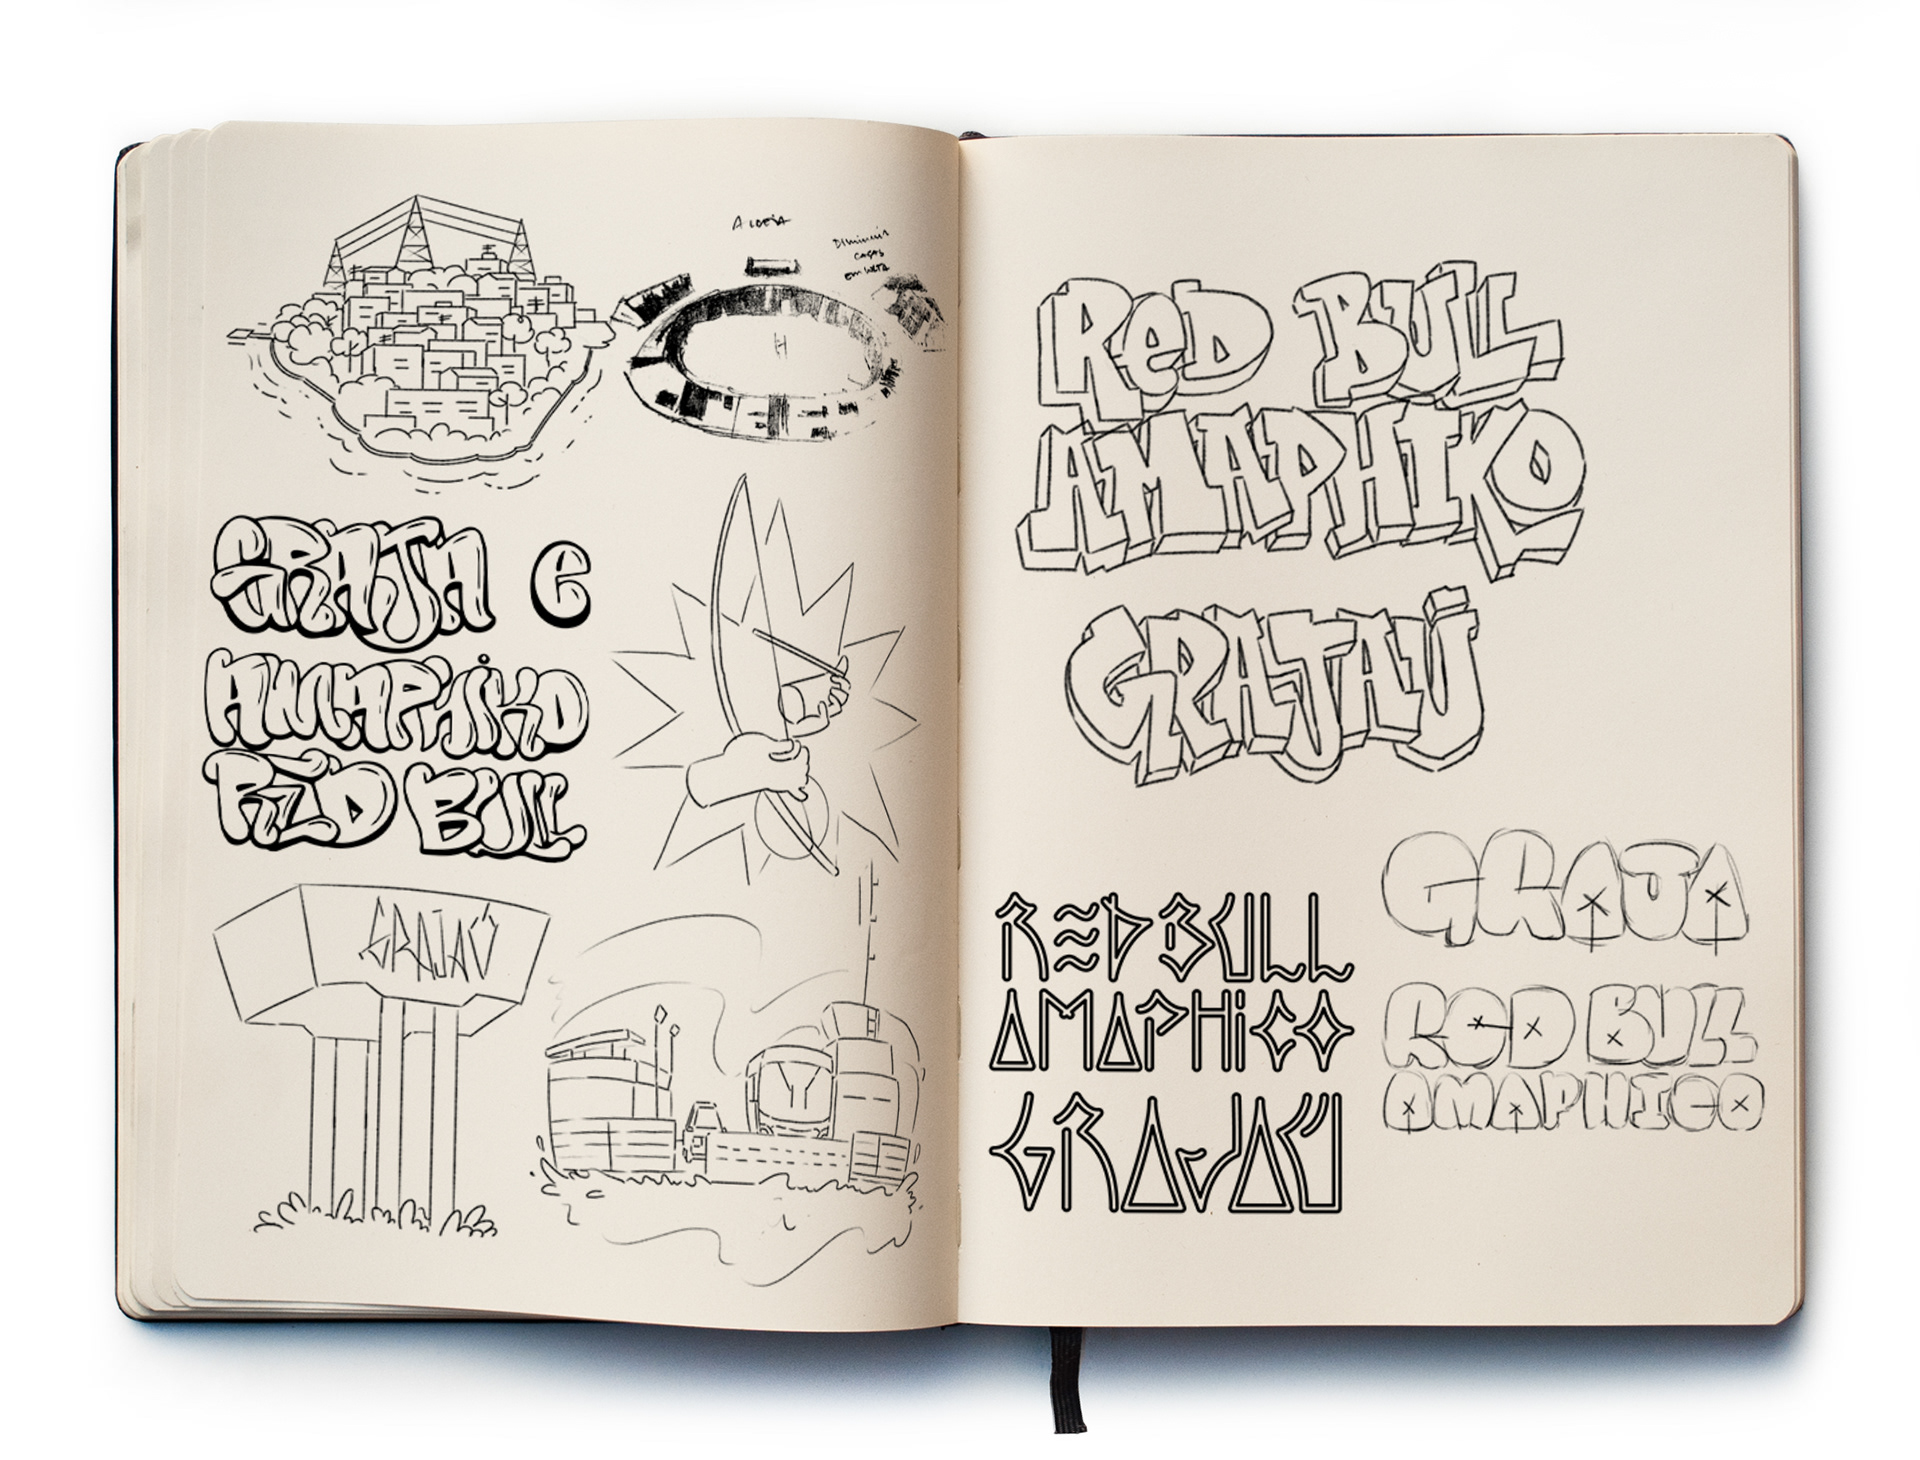 ALDEIA
Diminuir
casas
em volta
GRAJA E
AMAPHIKO
RED BULL
GRAJAÚ
RED BULL
AMAPHIKO
GRAJAÚ
RED BULL
AMAPHiCO
GRAJAÚ
GRAJA
RED BULL
AMAPHICO